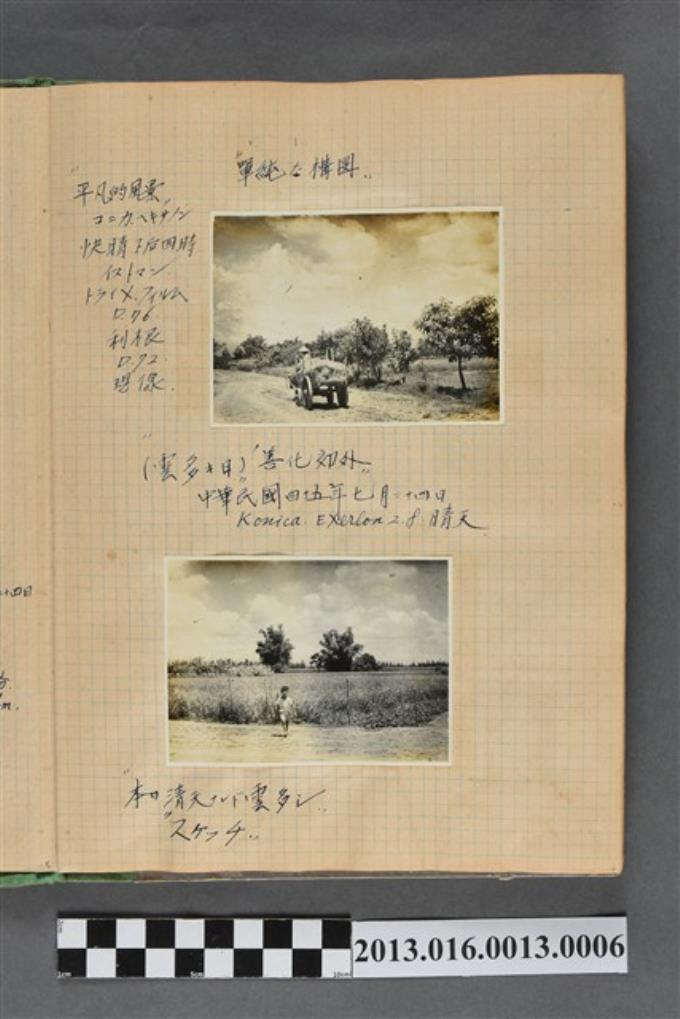 "單純な構圖"
"平凡的風景"
コニカ.ヘキサノン
快晴 下后四時
イストマン
トライX.フィルム
D.76.
D.72.
現像.
(雲多キ日)"善化郊外"
中華民國四五年七月二十四日
Konica. EXerlon 2.8. 晴天
"本日清天ナレド雲多シ"
"スケッチ"
二十四日
2013.016.0013.0006
1cm
5cm
10cm